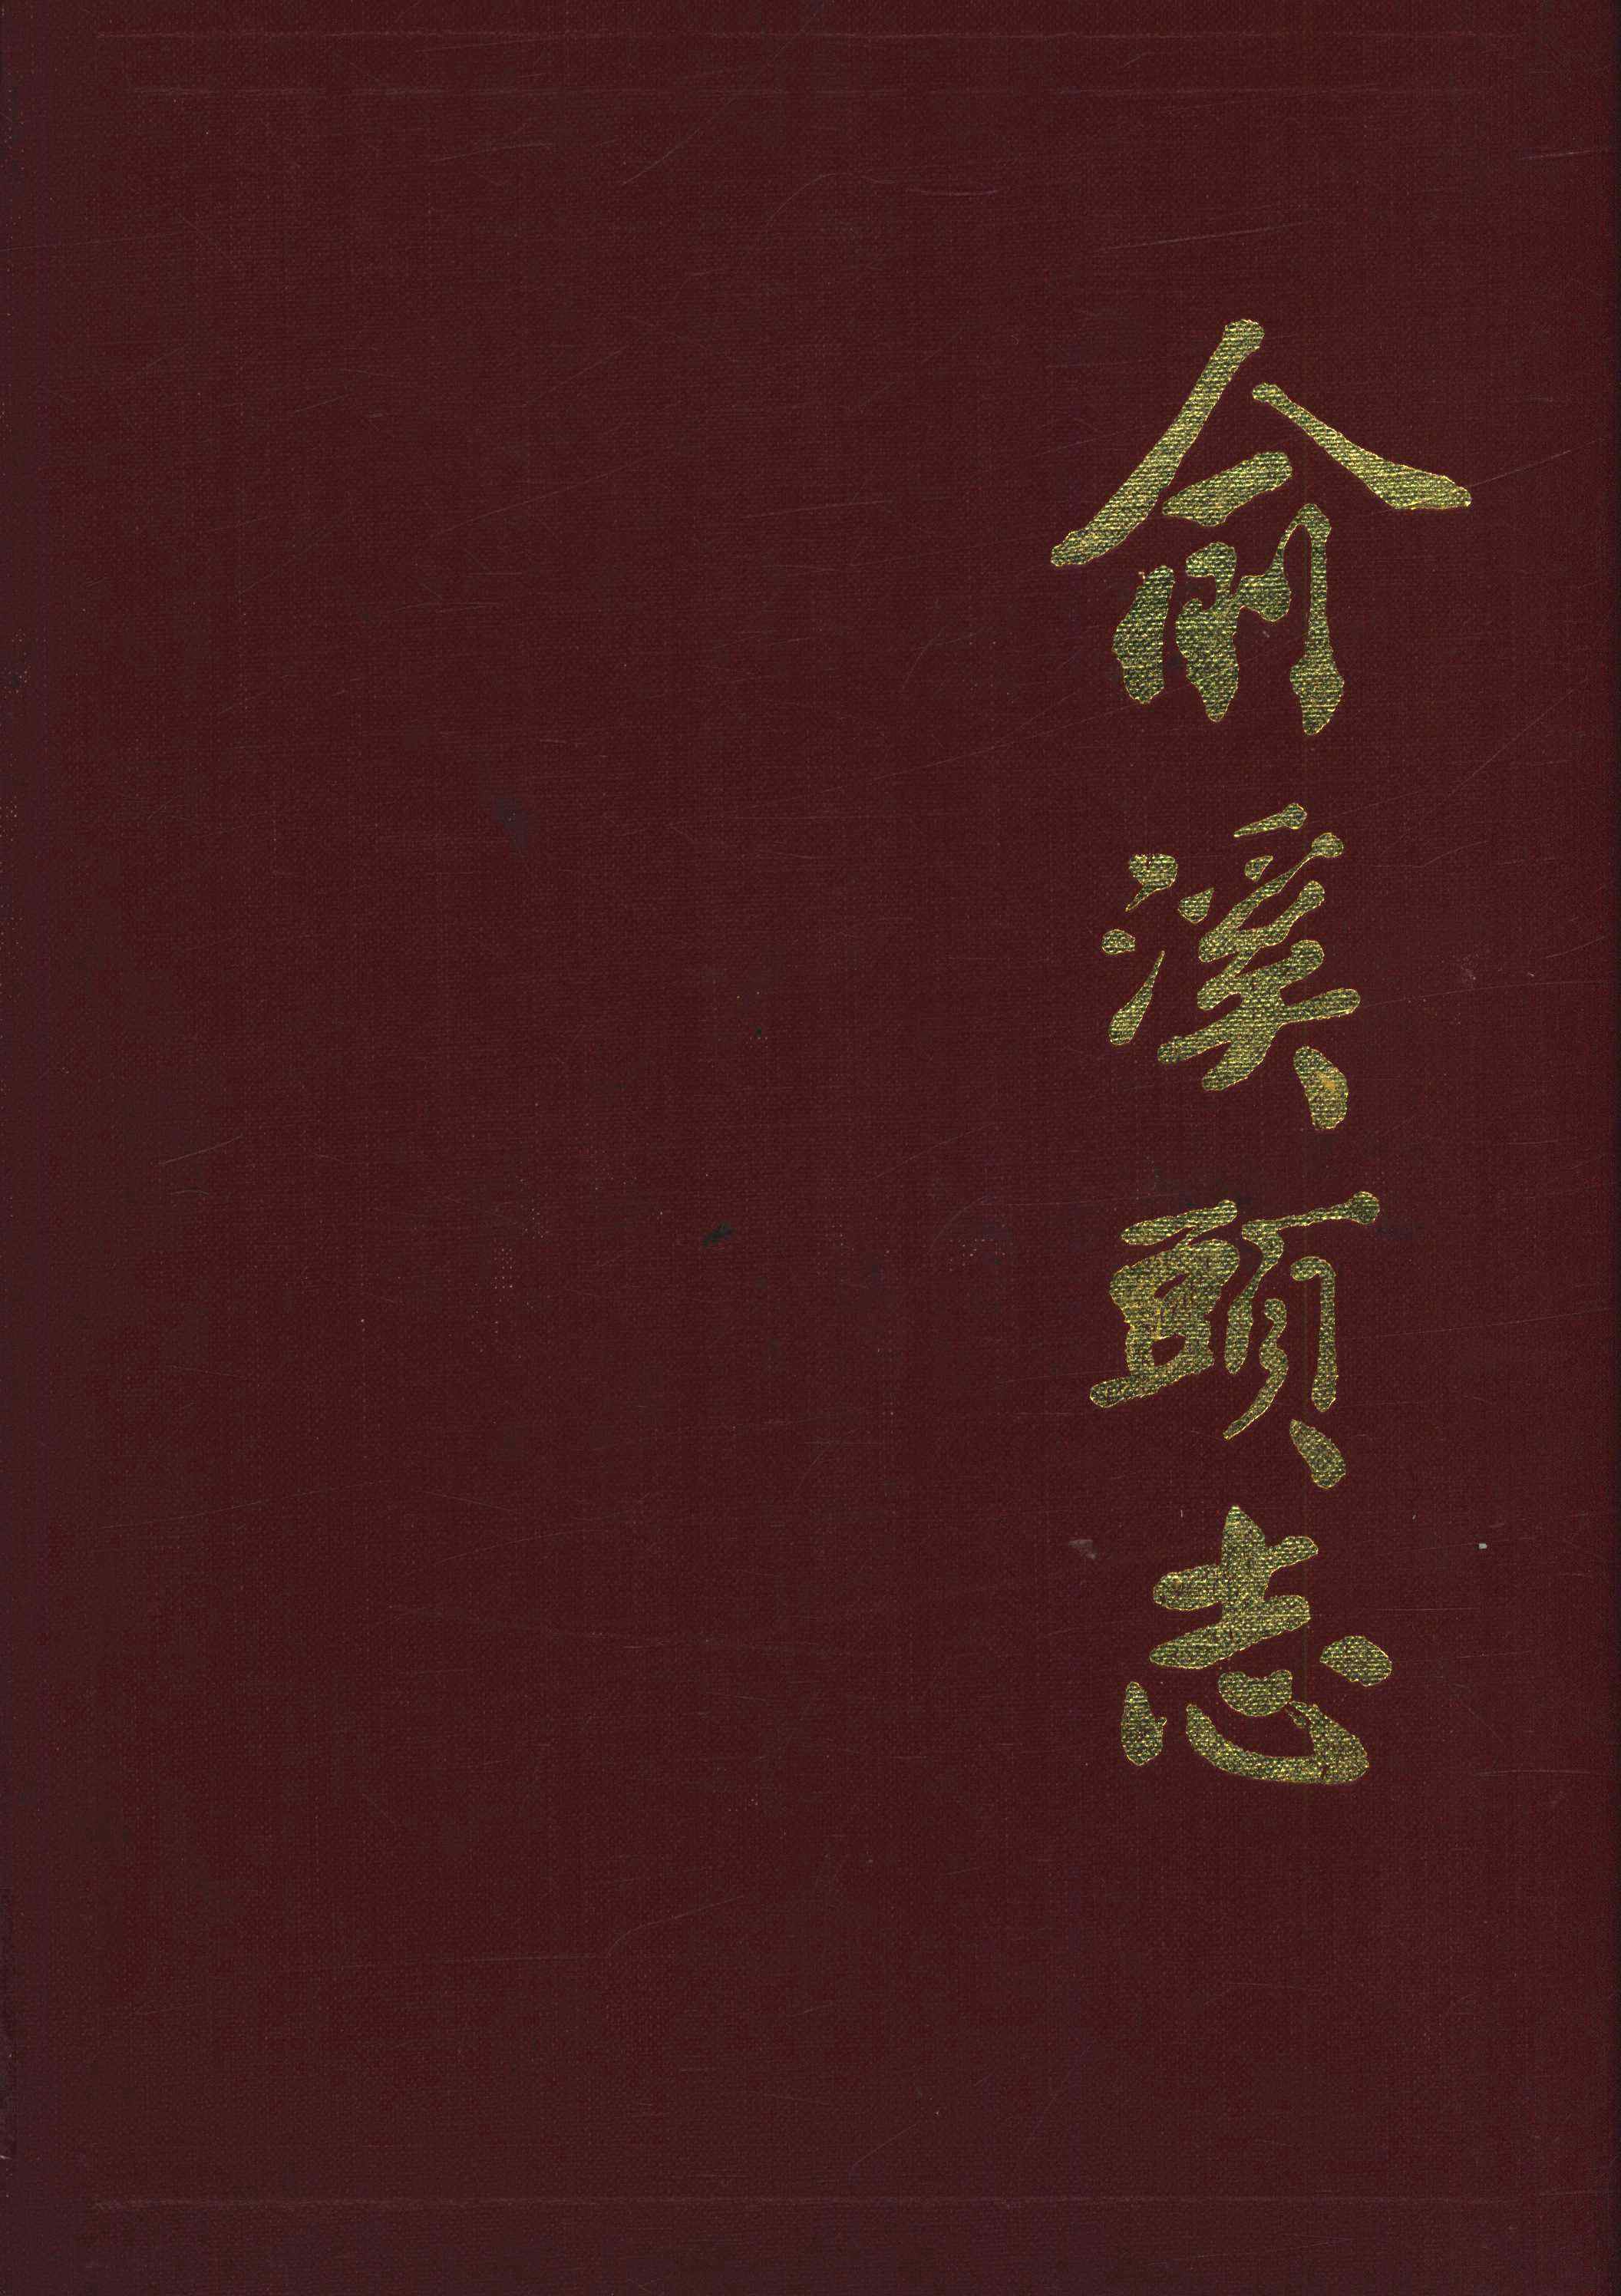 俞溪頭志